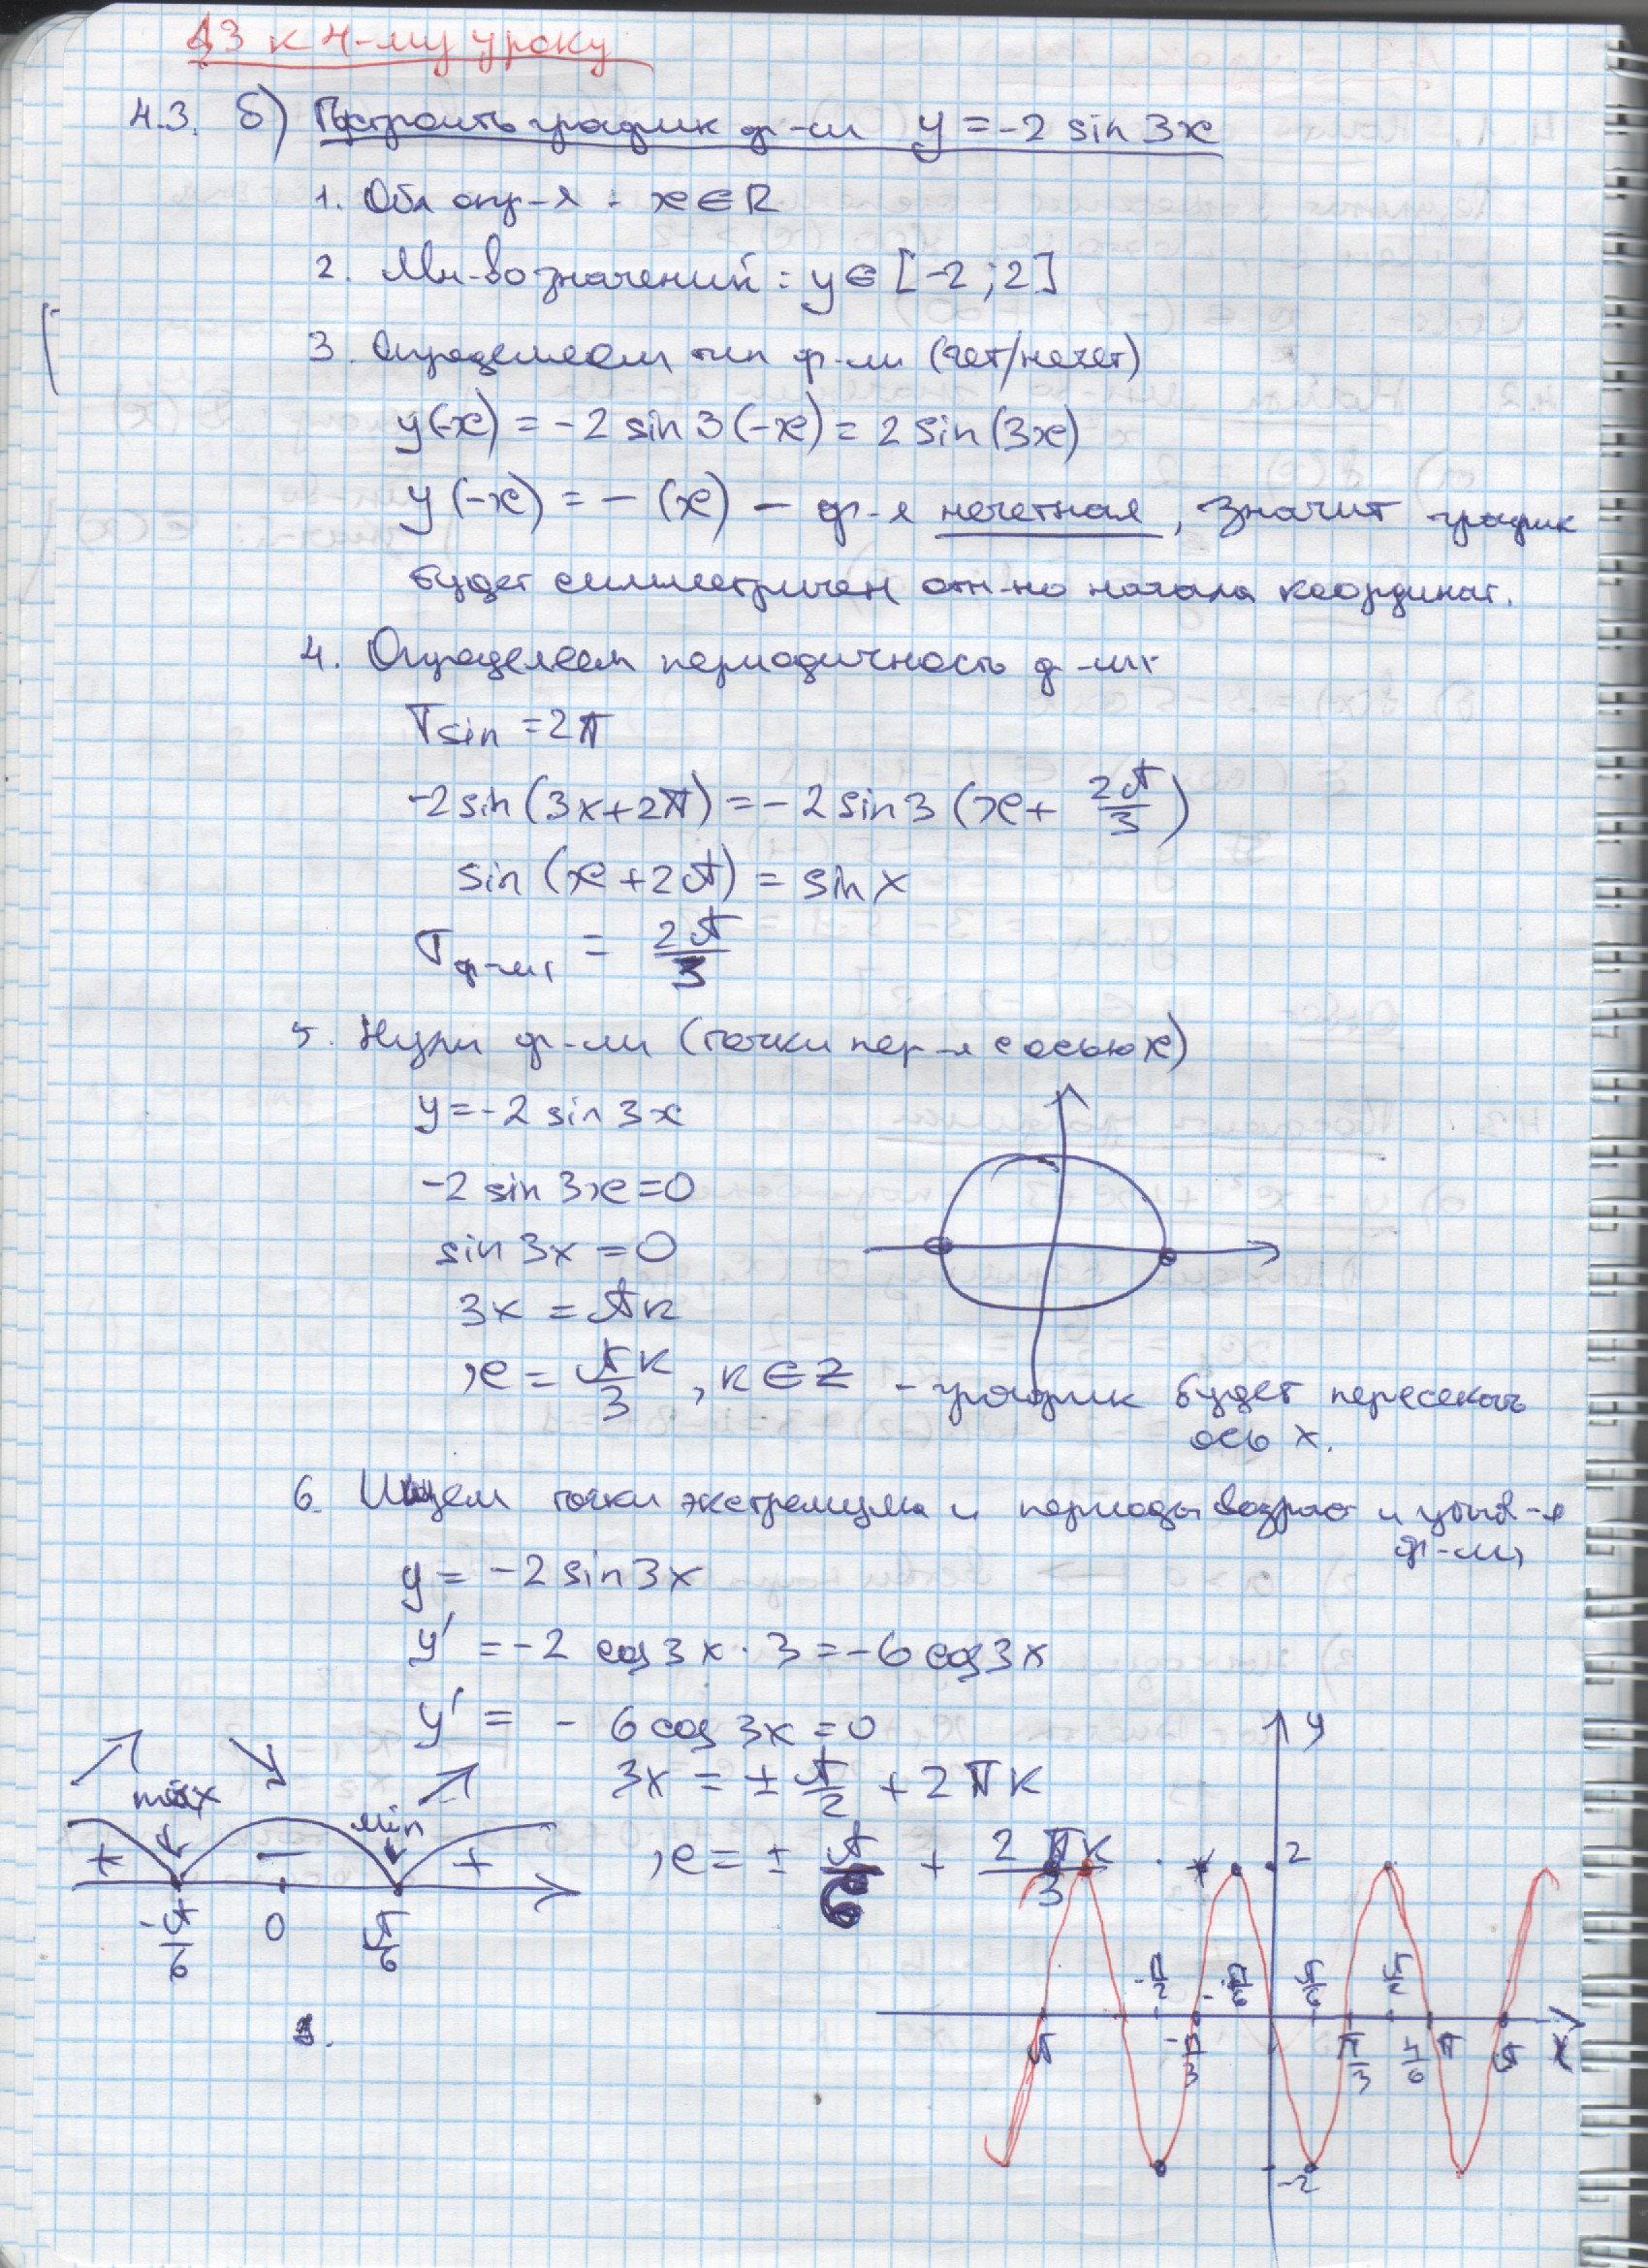 ДЗ к 4-му уроку
4.3. б) Построить график ф-ии y = -2 sin 3x
1. Обл опр-я : x ∈ R
2. Мн-во значений : y ∈ [-2 ; 2]
3. Определяем тип ф-ии (чет/нечет)
y(-x) = -2 sin 3(-x) = 2 sin (3x)
y(-x) = - (x) - ф-я нечетная, значит график
будет симметричен отн-но начала координат.
4. Определяем периодичность ф-ии
Tsin = 2π
-2 sin (3x+2π) = -2 sin 3 (x + 2π/3)
sin (x + 2π) = sin x
Tф-ии = 2π/3
5. Нули ф-ии (точки пер-я с осью x)
y = -2 sin 3x
-2 sin 3x = 0
sin 3x = 0
3x = πк
x = πк/3, к ∈ Z - график будет пересекать
ось x.
6. Ищем точки экстремума и периоды возраст и убыв-я
ф-ии
y = -2 sin 3x
y' = -2 cos 3x · 3 = -6 cos 3x
y' = - 6 cos 3x = 0
3x = ± π/2 + 2πк
x = ± π/6 + 2πк/3
max min
+ − +
-π/6 0 π/6
y
2
-π/2 -π/6 π/6 π/2
π -π/3 π/3 π/6 π π x
-2